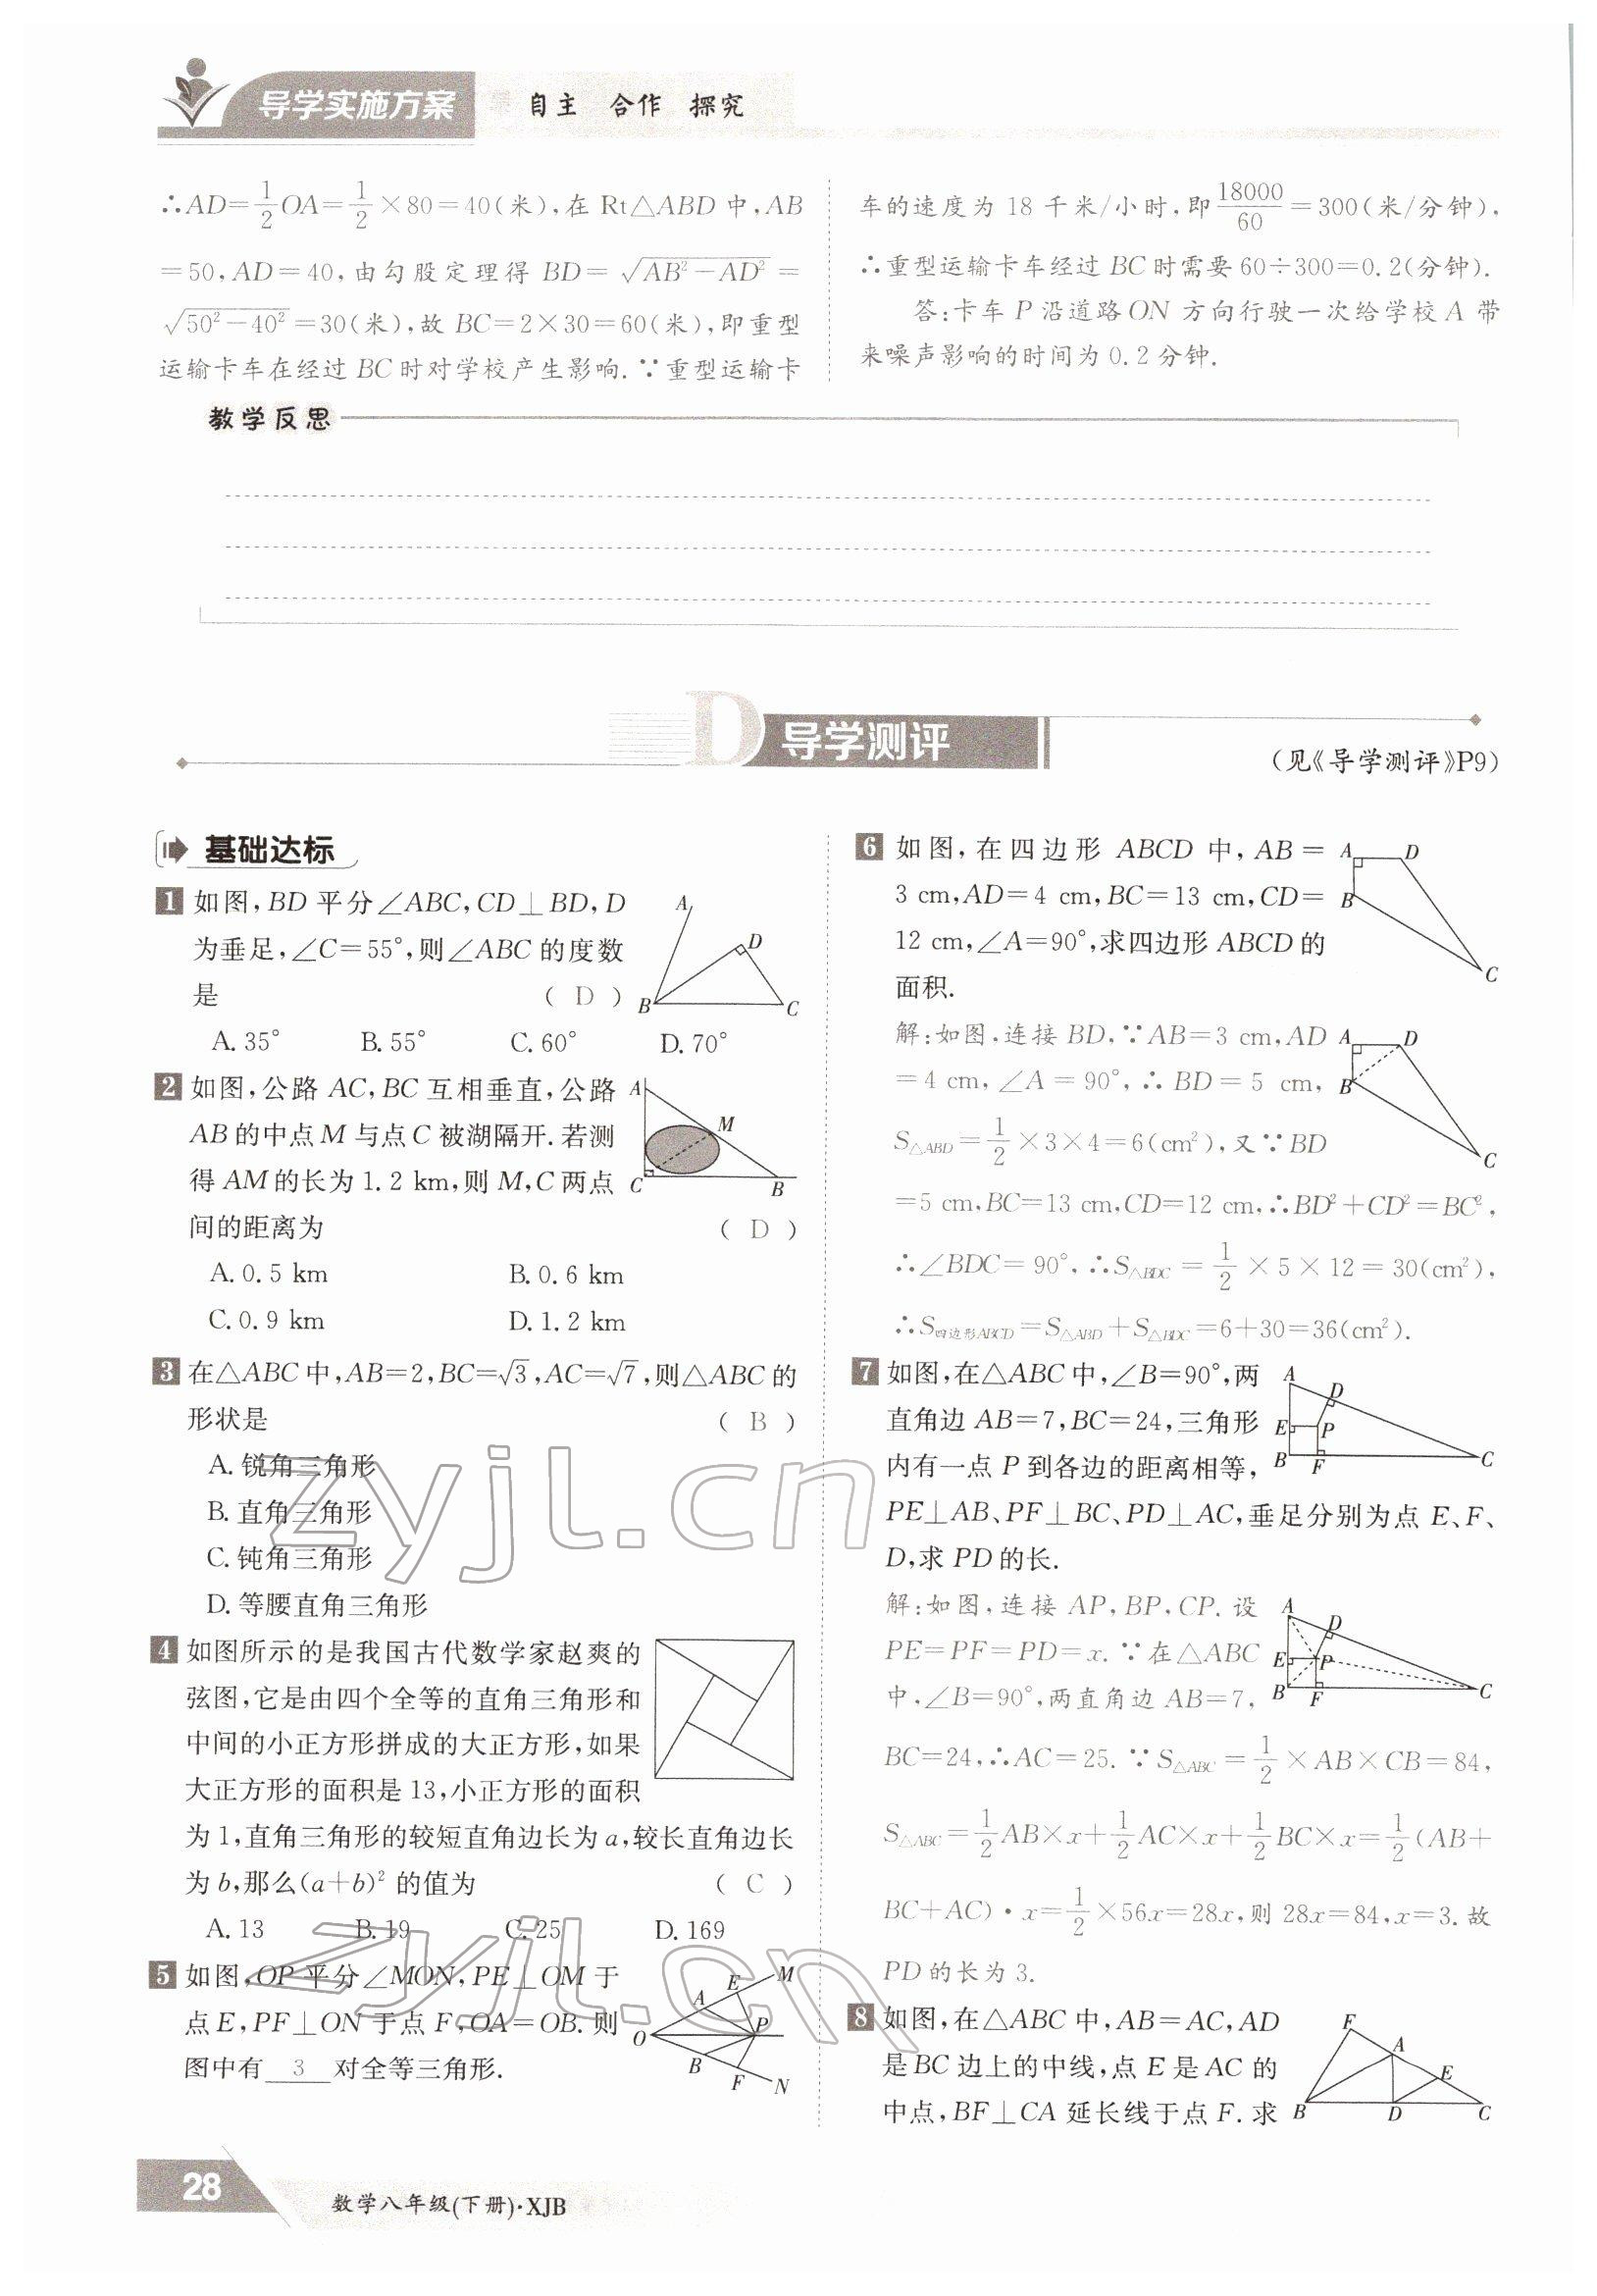 导学实施方案
自主 合作 探究
∴AD=1/2 OA=1/2×80=40(米),在 Rt△ABD 中,AB
=50,AD=40,由勾股定理得 BD=√(AB²-AD²)=
√(50²-40²)=30(米),故 BC=2×30=60(米),即重型
运输卡车在经过 BC 时对学校产生影响.∵重型运输卡
车的速度为 18 千米/小时,即18000/60=300(米/分钟),
∴重型运输卡车经过 BC 时需要 60÷300=0.2(分钟).
答:卡车 P 沿道路 ON 方向行驶一次给学校 A 带
来噪声影响的时间为 0.2 分钟.
教学反思
D 导学测评
(见《导学测评》P9)
基础达标
1 如图,BD 平分∠ABC,CD⊥BD,D
为垂足,∠C=55°,则∠ABC 的度数
是 ( D )
A. 35° B. 55° C. 60° D. 70°
A D B C
2 如图,公路 AC,BC 互相垂直,公路
AB 的中点 M 与点 C 被湖隔开.若测
得 AM 的长为 1.2 km,则 M,C 两点
间的距离为 ( D )
A. 0.5 km B. 0.6 km
C. 0.9 km D. 1.2 km
A M C B
3 在△ABC 中,AB=2,BC=√3,AC=√7,则△ABC 的
形状是 ( B )
A. 锐角三角形
B. 直角三角形
C. 钝角三角形
D. 等腰直角三角形
4 如图所示的是我国古代数学家赵爽的
弦图,它是由四个全等的直角三角形和
中间的小正方形拼成的大正方形,如果
大正方形的面积是 13,小正方形的面积
为 1,直角三角形的较短直角边长为 a,较长直角边长
为 b,那么(a+b)² 的值为 ( C )
A. 13 B. 19 C. 25 D. 169
5 如图,OP 平分∠MON,PE⊥OM 于
点 E,PF⊥ON 于点 F,OA=OB.则
图中有 3 对全等三角形.
M E A O P B F N
6 如图,在四边形 ABCD 中,AB=
3 cm,AD=4 cm,BC=13 cm,CD=
12 cm,∠A=90°,求四边形 ABCD 的
面积.
A D B C
解:如图,连接 BD,∵AB=3 cm,AD
=4 cm,∠A=90°,∴BD=5 cm,
S△ABD=1/2×3×4=6(cm²),又∵BD
=5 cm,BC=13 cm,CD=12 cm,∴BD²+CD²=BC²,
∴∠BDC=90°,∴S△BDC=1/2×5×12=30(cm²),
∴S四边形ABCD=S△ABD+S△BDC=6+30=36(cm²).
A D B C
7 如图,在△ABC 中,∠B=90°,两
直角边 AB=7,BC=24,三角形
内有一点 P 到各边的距离相等,
PE⊥AB、PF⊥BC、PD⊥AC,垂足分别为点 E、F、
D,求 PD 的长.
A D E P B F C
解:如图,连接 AP,BP,CP.设
PE=PF=PD=x.∵在△ABC
中,∠B=90°,两直角边 AB=7,
BC=24,∴AC=25.∵S△ABC=1/2×AB×CB=84,
S△ABC=1/2AB×x+1/2AC×x+1/2BC×x=1/2(AB+
BC+AC)·x=1/2×56x=28x,则 28x=84,x=3.故
PD 的长为 3.
A D E P B F C
8 如图,在△ABC 中,AB=AC,AD
是 BC 边上的中线,点 E 是 AC 的
中点,BF⊥CA 延长线于点 F.求
F A E B D C
zyjl.cn
zyjl.cn
28
数学八年级(下册)·XJB